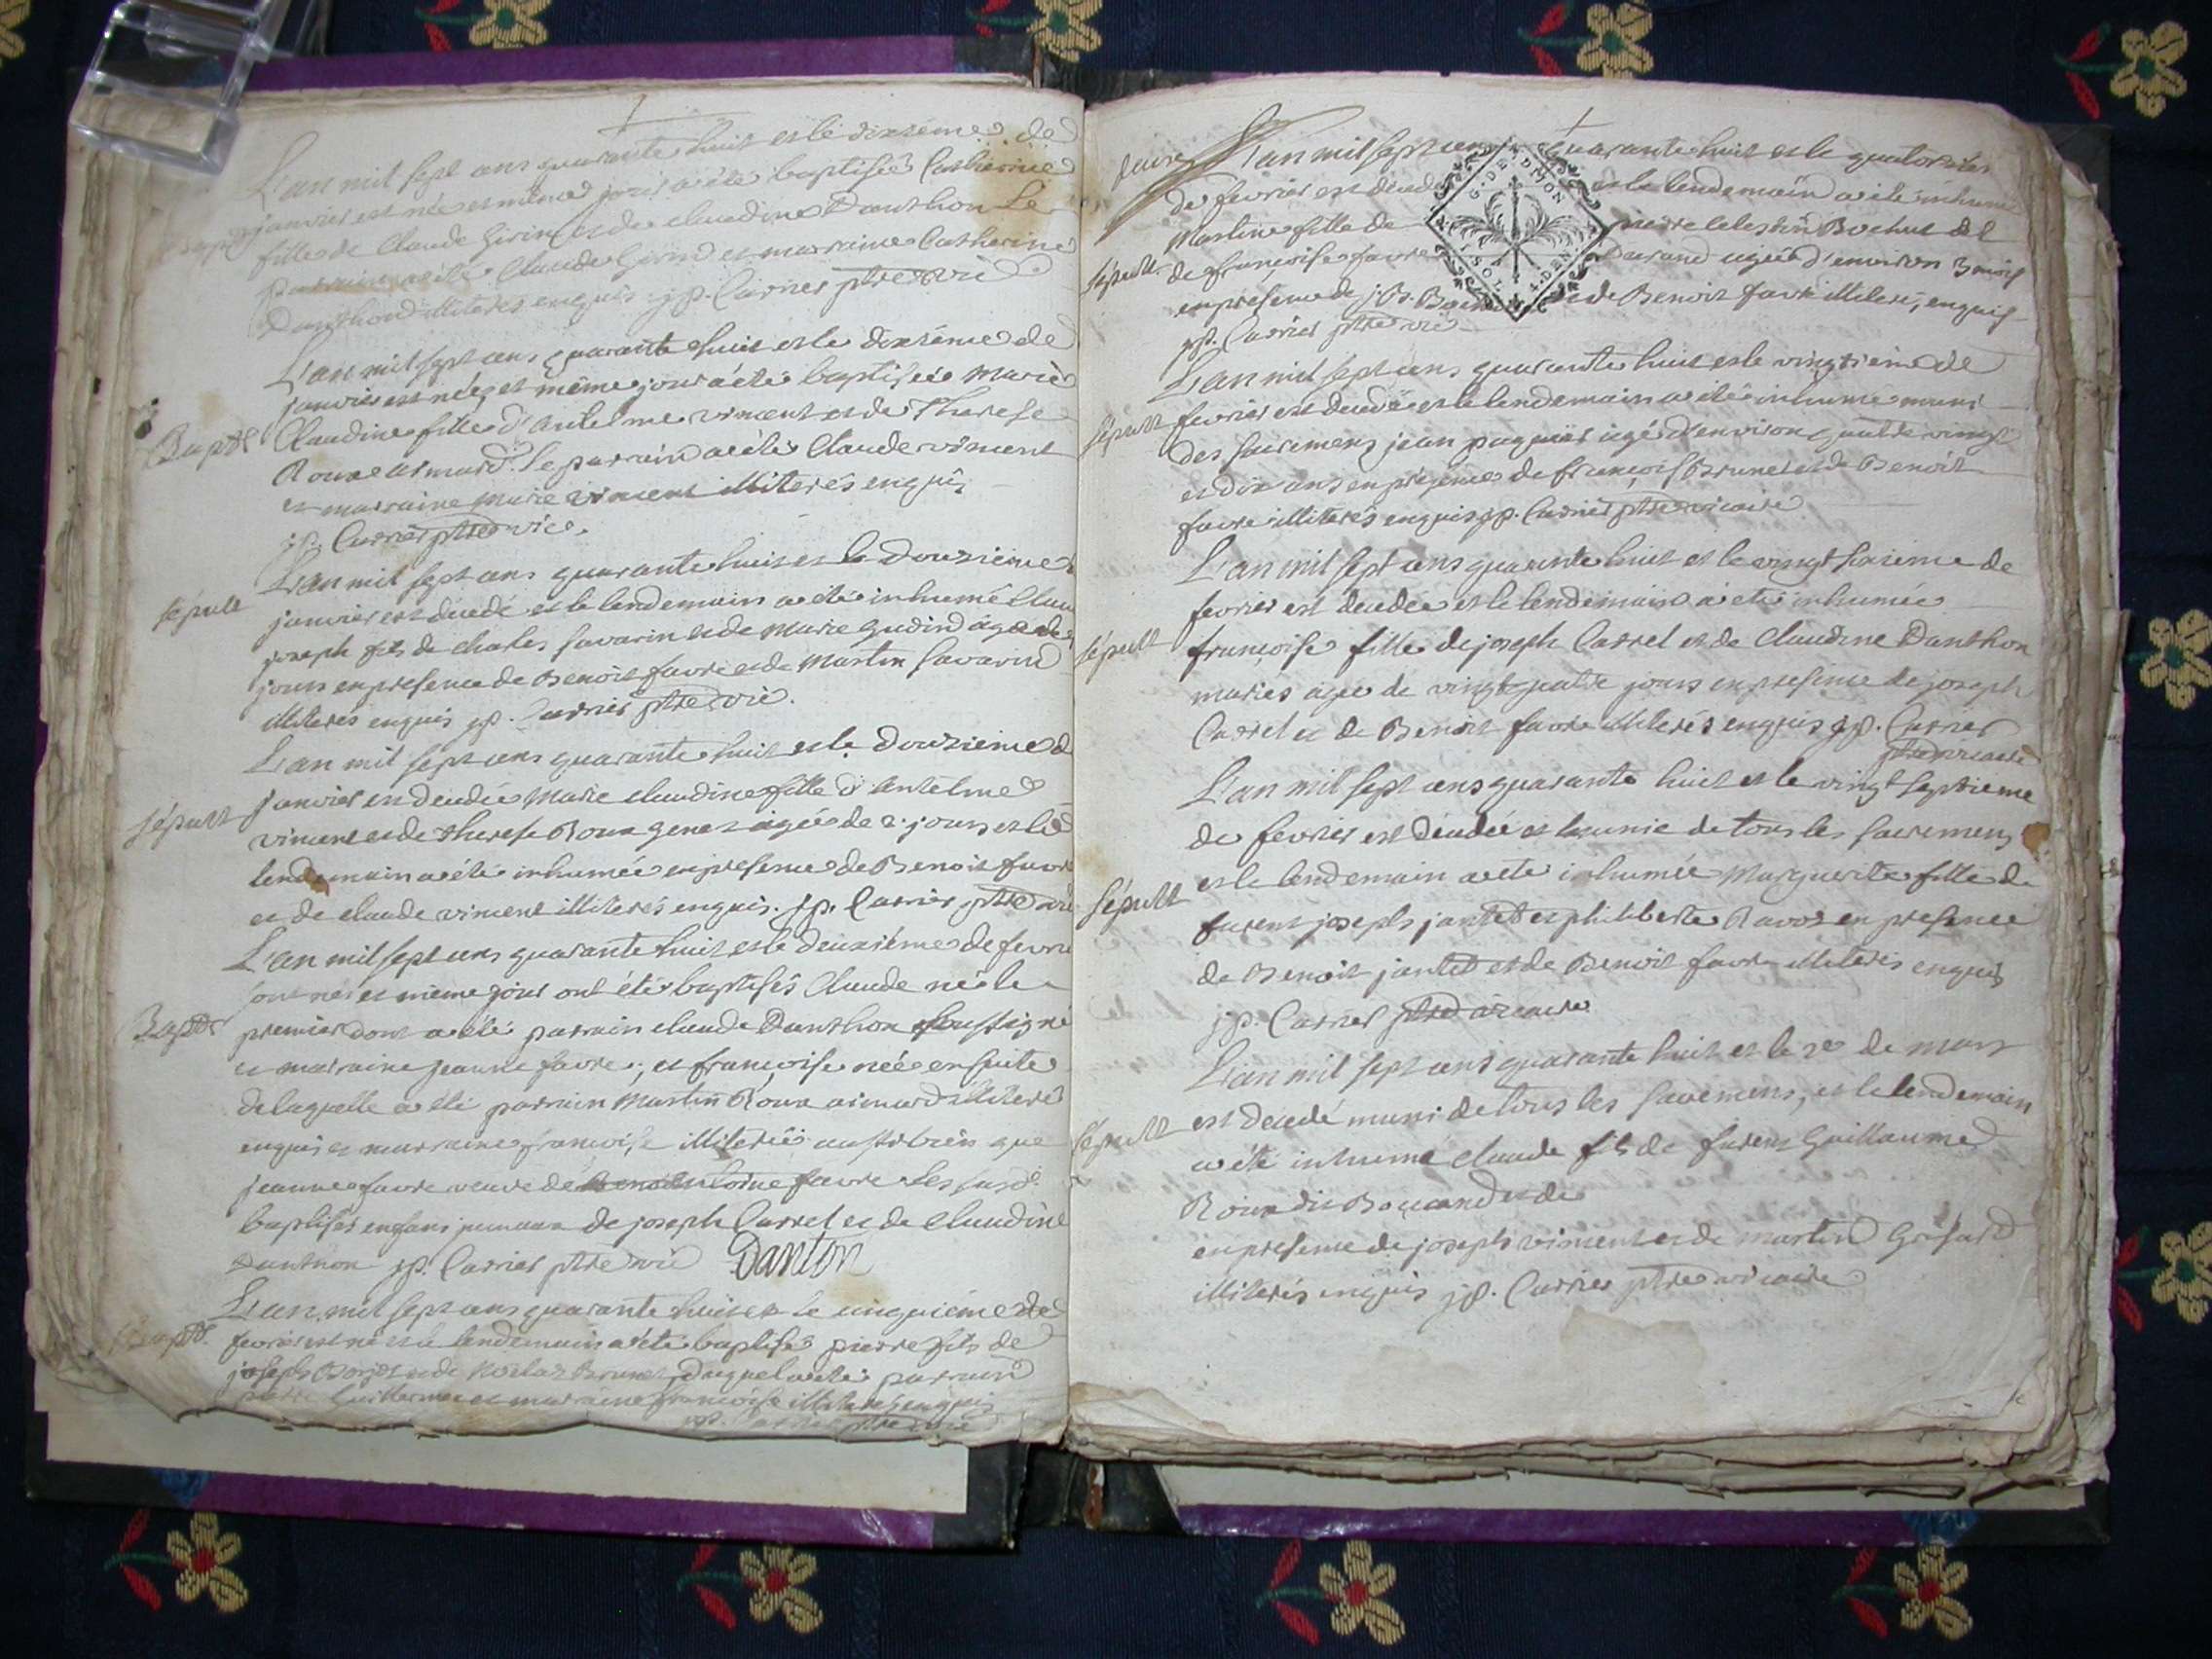 L'an mil sept cens quarante huit et le dixieme de
janvier est née et même jour a été baptisée Catherine
fille de Claude Girin et de claudine Danthon Le
parrain a été Claude Girin et marraine Catherine
Danthon illiterés enquis jp. Carrier ptre vic
L'an mil sept cens quarante huit et le dixième de
janvier est née, et même jour a été baptisée marie
Bapte Claudine fille d'Antelme viment et de Therese
Roux mariés. Le parrain a été Claude viment
et marraine marie viment illiterés enquis
jp. Carrier ptre vic.
L'an mil sept cens quarante huit et le Douzieme
sépult janvier est décédé et le lendemain a été inhumé Clau
joseph fils de charles savarin et de Marie Gudin âgé de
jours en presence de Benoit favre et de Martin Savarin
illiterés enquis jp. Carrier ptre vic.
L'an mil sept cens quarante huit et le Douzieme d
sépult janvier est decedée Marie claudine fille d'Antelme
viment et de therese Roux âgée de 2. jours et le
lendemain a été inhumée en presence de Benoit favre
et de claude viment illiterés enquis. jp. Carrier ptre vic
L'an mil sept cens quarante huit et le deuxième de fevrie
sont nés et même jour ont été baptisés Claude né le
Bapte premier dont a été parrain claude Danthon soussigné
et marraine jeanne favre, et françoise née ensuite
de laquelle a été parrain Martin Roux illiteré
enquis et marraine françoise illiterée aussi bien que
jeanne favre veuve de favre les susd.
baptisés enfans jumeaux de joseph Carrel et de Claudine
Danthon jp. Carrier ptre vic Danton
L'an mil sept cens quarante huit et le cinquième de
Bapte. fevrier est né et le lendemain a été baptisé pierre fils de
joseph et de Brunet Duquel a été parrain
pierre Guillermet et marraine françoise illiterés enquis
jp. Carrier ptre vic
L'an mil sept cens quarante huit et le
de fevrier est décéd et le lendemain a été inhumé
G. DE DIJON
SOLS 4. DEN
Marline fille de pierre celestin Bochut et
sépult de françoise favre Durand agée d'environ 3 mois
en presence de j. B. et de Benoit favre illiterés, enquis
jp. Carrier ptre vic
L'an mil sept cens quarante huit et le vingtième de
sépult fevrier est décédé et le lendemain a été inhumé muni
des sacremens jean agé d'environ quatre vingt
et dix ans en présence de françois Brunet et de Benoît
favre illiterés enquis jp. Carrier ptre vicaire
L'an mil sept cens quarante huit et le vingt sixieme de
fevrier est decedée et le lendemain a été inhumée
sépult françoise fille de joseph Carrel et de Claudine Danthon
mariés agée de vingt quatre jours en presence de joseph
Carrel et de Benoit favre illiterés enquis jp. Carrier
ptre vicaire
L'an mil sept cens quarante huit et le vingt septieme
de fevrier est décedée et munie de tous les sacremens
et le lendemain a été inhumée Marguerite fille de
sépult furent joseph jantet et philiberte Ravoz en presence
de Benoit jantet et de Benoit favre illiterés enquis
jp. Carrier ptre vicaire
L'an mil sept cens quarante huit et le 2e de mars
est decedé muni de tous les sacremens, et le lendemain
sépult a été inhumé claude fils de furent Guillaume
Roux dit et de
en presence de joseph viment et de martin Grisard
illiterés enquis jp. Carrier ptre vicaire